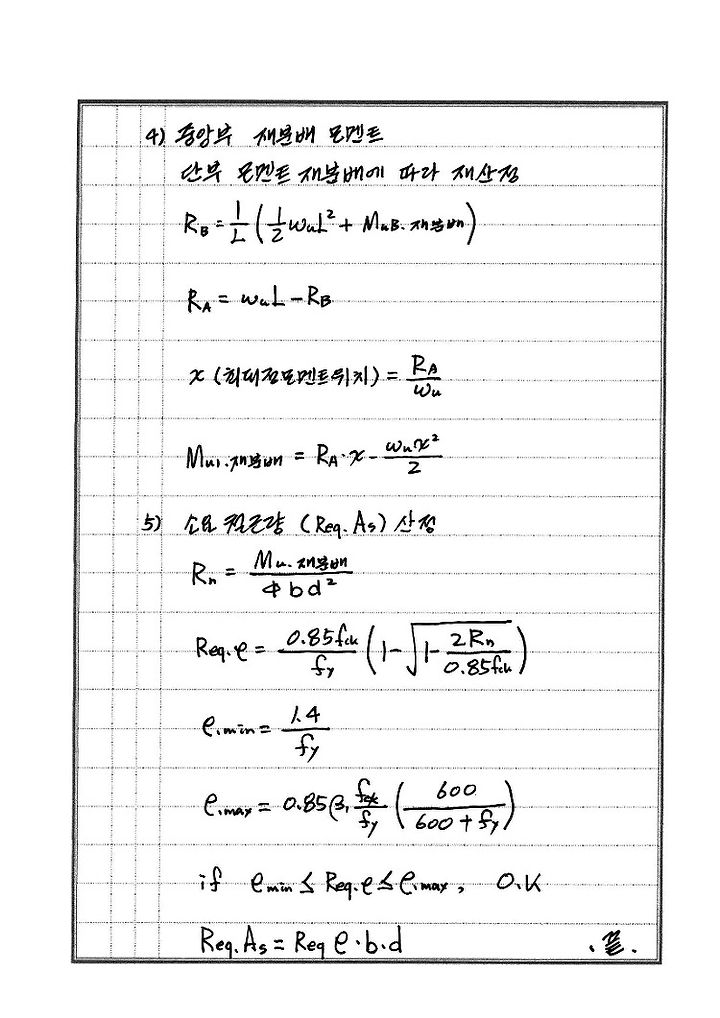 4) 중앙부 재분배 모멘트
단부 모멘트 재분배에 따라 재산정
R_B = 1/L (1/2 w_u L² + M_uB.재분배)
R_A = w_u L - R_B
x (최대정모멘트위치) = R_A / w_u
M_u1.재분배 = R_A · x - w_u x² / 2
5) 소요 철근량 (Req. As) 산정
R_n = M_u.재분배 / Φ b d²
Req.ρ = 0.85fck / fy (1 - √(1 - 2R_n / 0.85fck))
ρ.min = 1.4 / fy
ρ.max = 0.85 β₁ fck / fy (600 / 600 + fy)
if ρmin ≤ Req.ρ ≤ ρ.max, O.K
Req. As = Req ρ · b · d .끝.